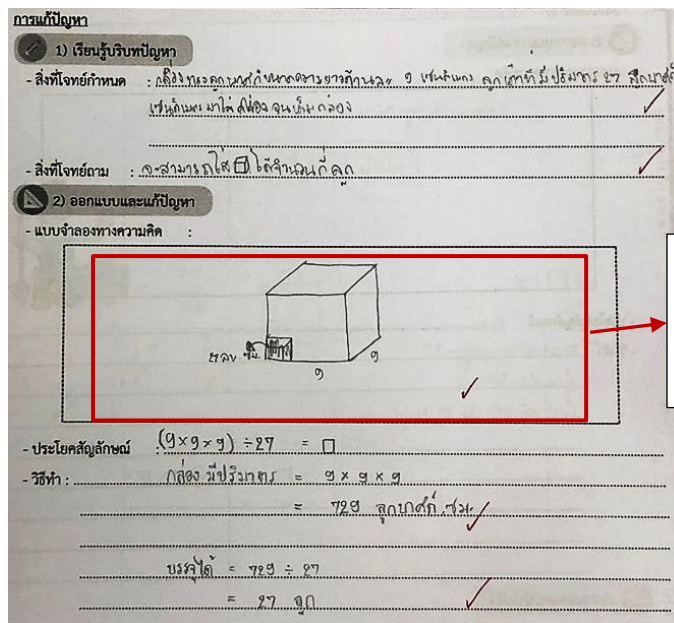 การแก้ปัญหา
1) เรียนรู้บริบทปัญหา
- สิ่งที่โจทย์กำหนด : กล่องทรงลูกบาศก์ขนาดความยาวด้านละ 9 เซนติเมตร ลูกเต๋าที่มีปริมาตร 27 ลูกบาศก์
เซนติเมตร มาใส่กล่องจนเต็มกล่อง
- สิ่งที่โจทย์ถาม : จะสามารถใส่ ได้จำนวนกี่ลูก
2) ออกแบบและแก้ปัญหา
- แบบจำลองทางความคิด :
27 ลบ. ซม.
9
9
- ประโยคสัญลักษณ์ : (9×9×9) ÷27 = □
- วิธีทำ : กล่อง มีปริมาตร = 9 × 9 × 9
= 729 ลูกบาศก์.ซม.
บรรจุได้ = 729 ÷ 27
= 27 ลูก